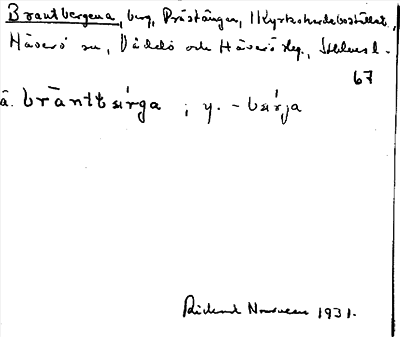 Brantbergena, berg, Prästängen, 1 Kyrkoherdebostället,
Häverö sn, Väddö och Häverö skg., Sthlms l.
67
ä. brāntbärga ; y. -bärja
Rickard 1931.